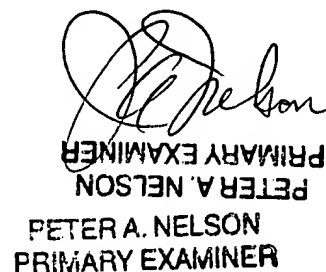 Nelson
PRIMARY EXAMINER
PETER A. NELSON
PETER A. NELSON
PRIMARY EXAMINER